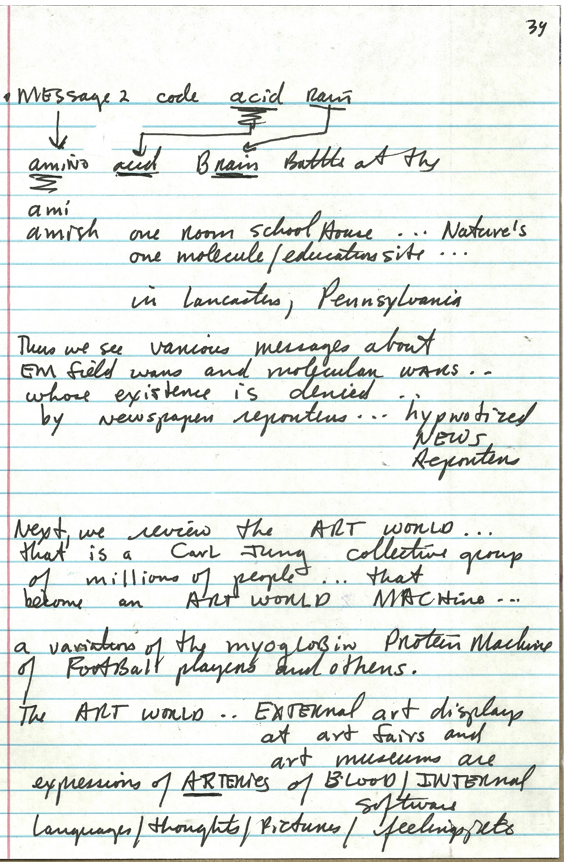 39
• MESSage 2 code acid rain
amino acid Brain Battle at the
ami
amish one room school House ... Nature's
one molecule/education site ...
in Lancaster, Pennsylvania
Thus we see various messages about
EM field wars and molecular wars ..
whose existence is denied ..
by Newspaper reporters ... hypnotized
NEWS
Reporters
Next, we review the ART WORLD ...
that is a Carl Jung collective group
of millions of people ... that
become an ART WORLD MACHine ...
a variation of the myoglobin Protein Machine
of FootBall players and others.
The ART WORLD .. EXTERNal art displays
at art fairs and
art museums are
expressions of ARTERIES of BLOOD/INTERNal
Software
Languages/thoughts/Pictures/feelings, etc